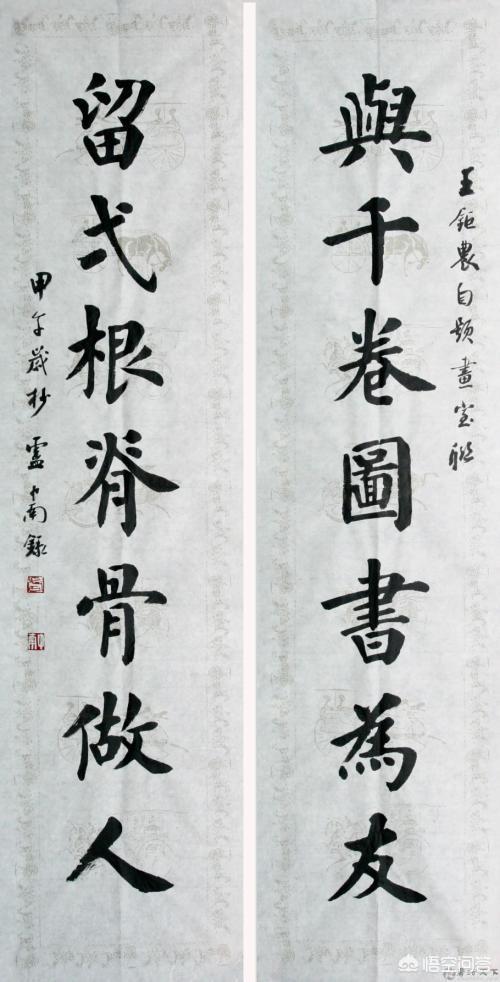 王鉅農自題畫室聯
與千卷圖書為友
留弌根脊骨做人
甲午歲杪 盧中南錄
悟空问答